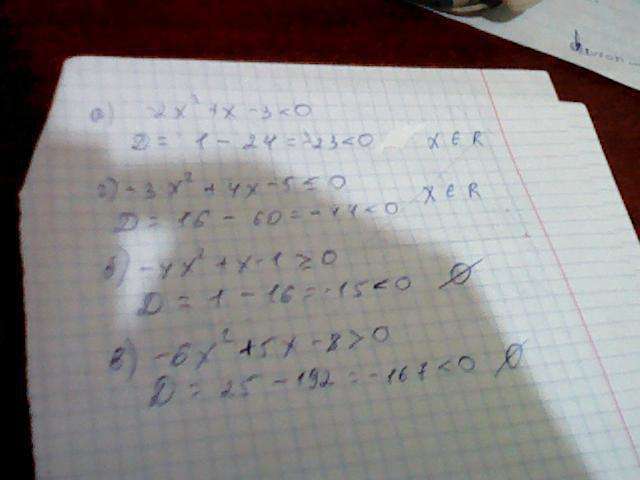 а) -2x² + x - 3 < 0
D = 1 - 24 = -23 < 0 x ∈ R
г) -3x² + 4x - 5 ≤ 0 x ∈ R
D = 16 - 60 = -44 < 0
б) -4x² + x - 1 ≥ 0
D = 1 - 16 = -15 < 0 ∅
в) -6x² + 5x - 8 > 0
D = 25 - 192 = -167 < 0 ∅